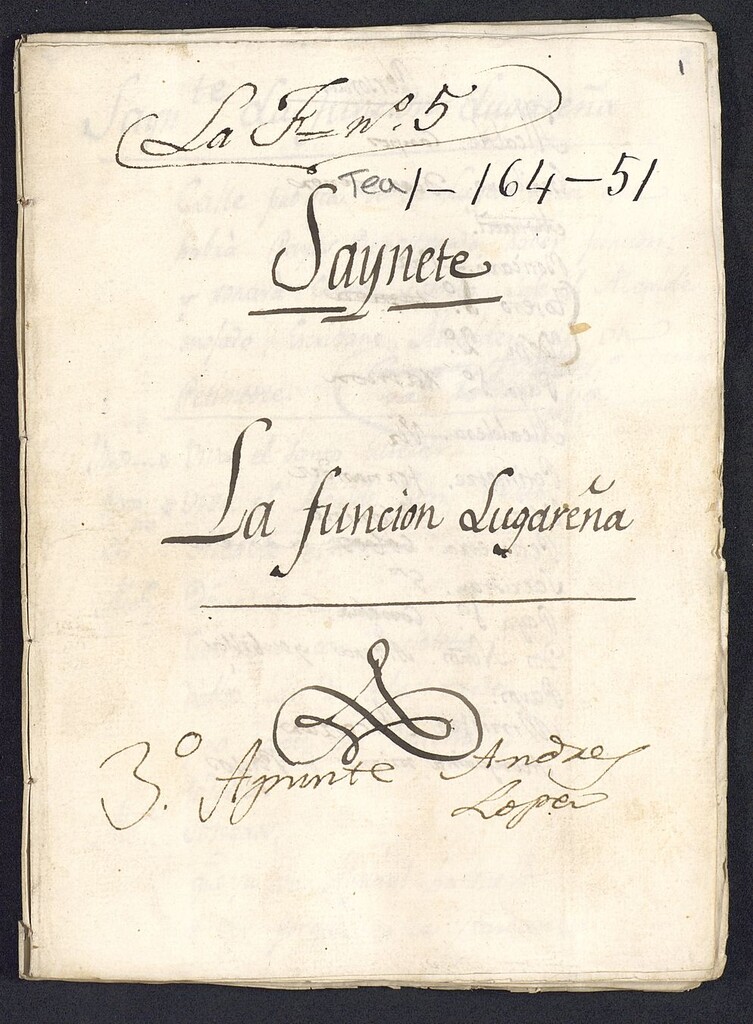 1
La F nº. 5
Tea 1-164-51
Saynete
La funcion Lugareña
3.º Apunte Andres
Lopez